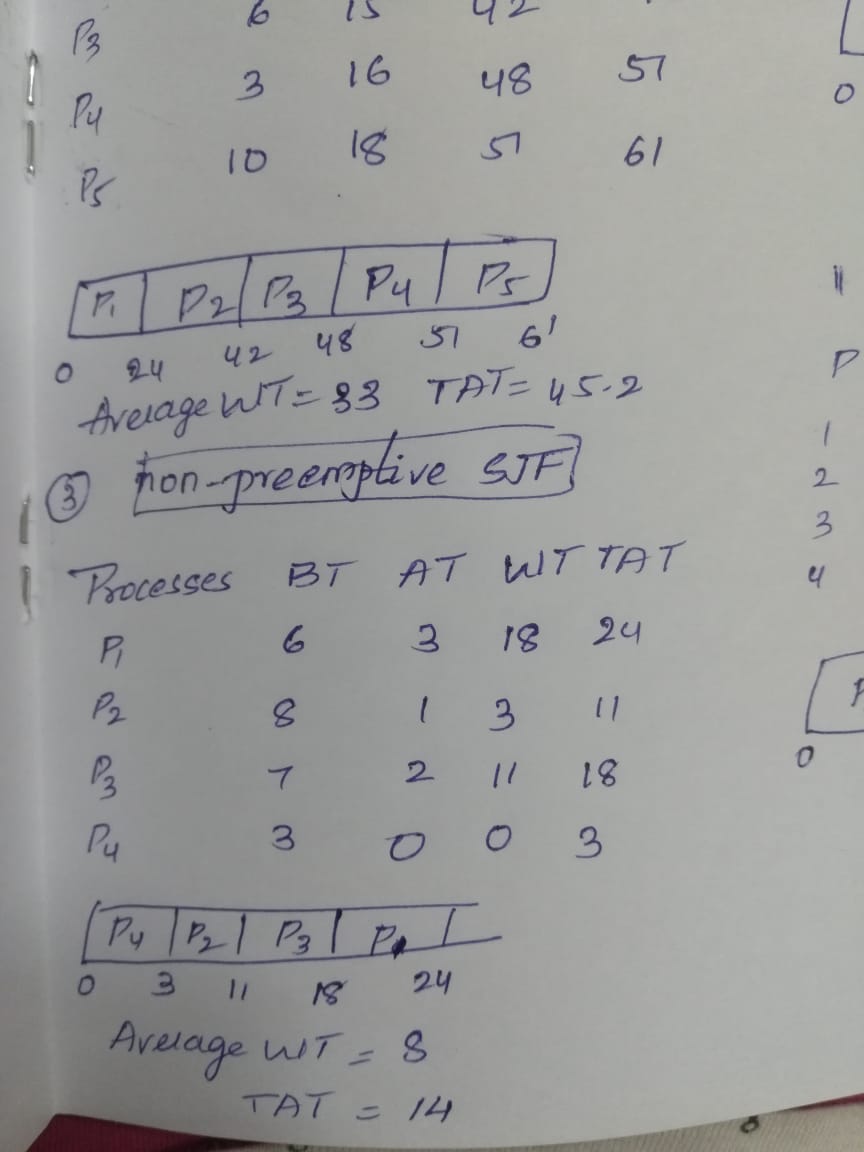 P3 6 15 42
P4 3 16 48 51
P5 10 18 51 61
P1 P2 P3 P4 P5
0 24 42 48 51 61
Average WT = 33 TAT = 45.2
③ non-preemptive SJF
Processes BT AT WT TAT
P1 6 3 18 24
P2 8 1 3 11
P3 7 2 11 18
P4 3 0 0 3
P4 P2 P3 P1
0 3 11 18 24
Average WT = 8
TAT = 14
0
11
P
1
2
3
4
P
0